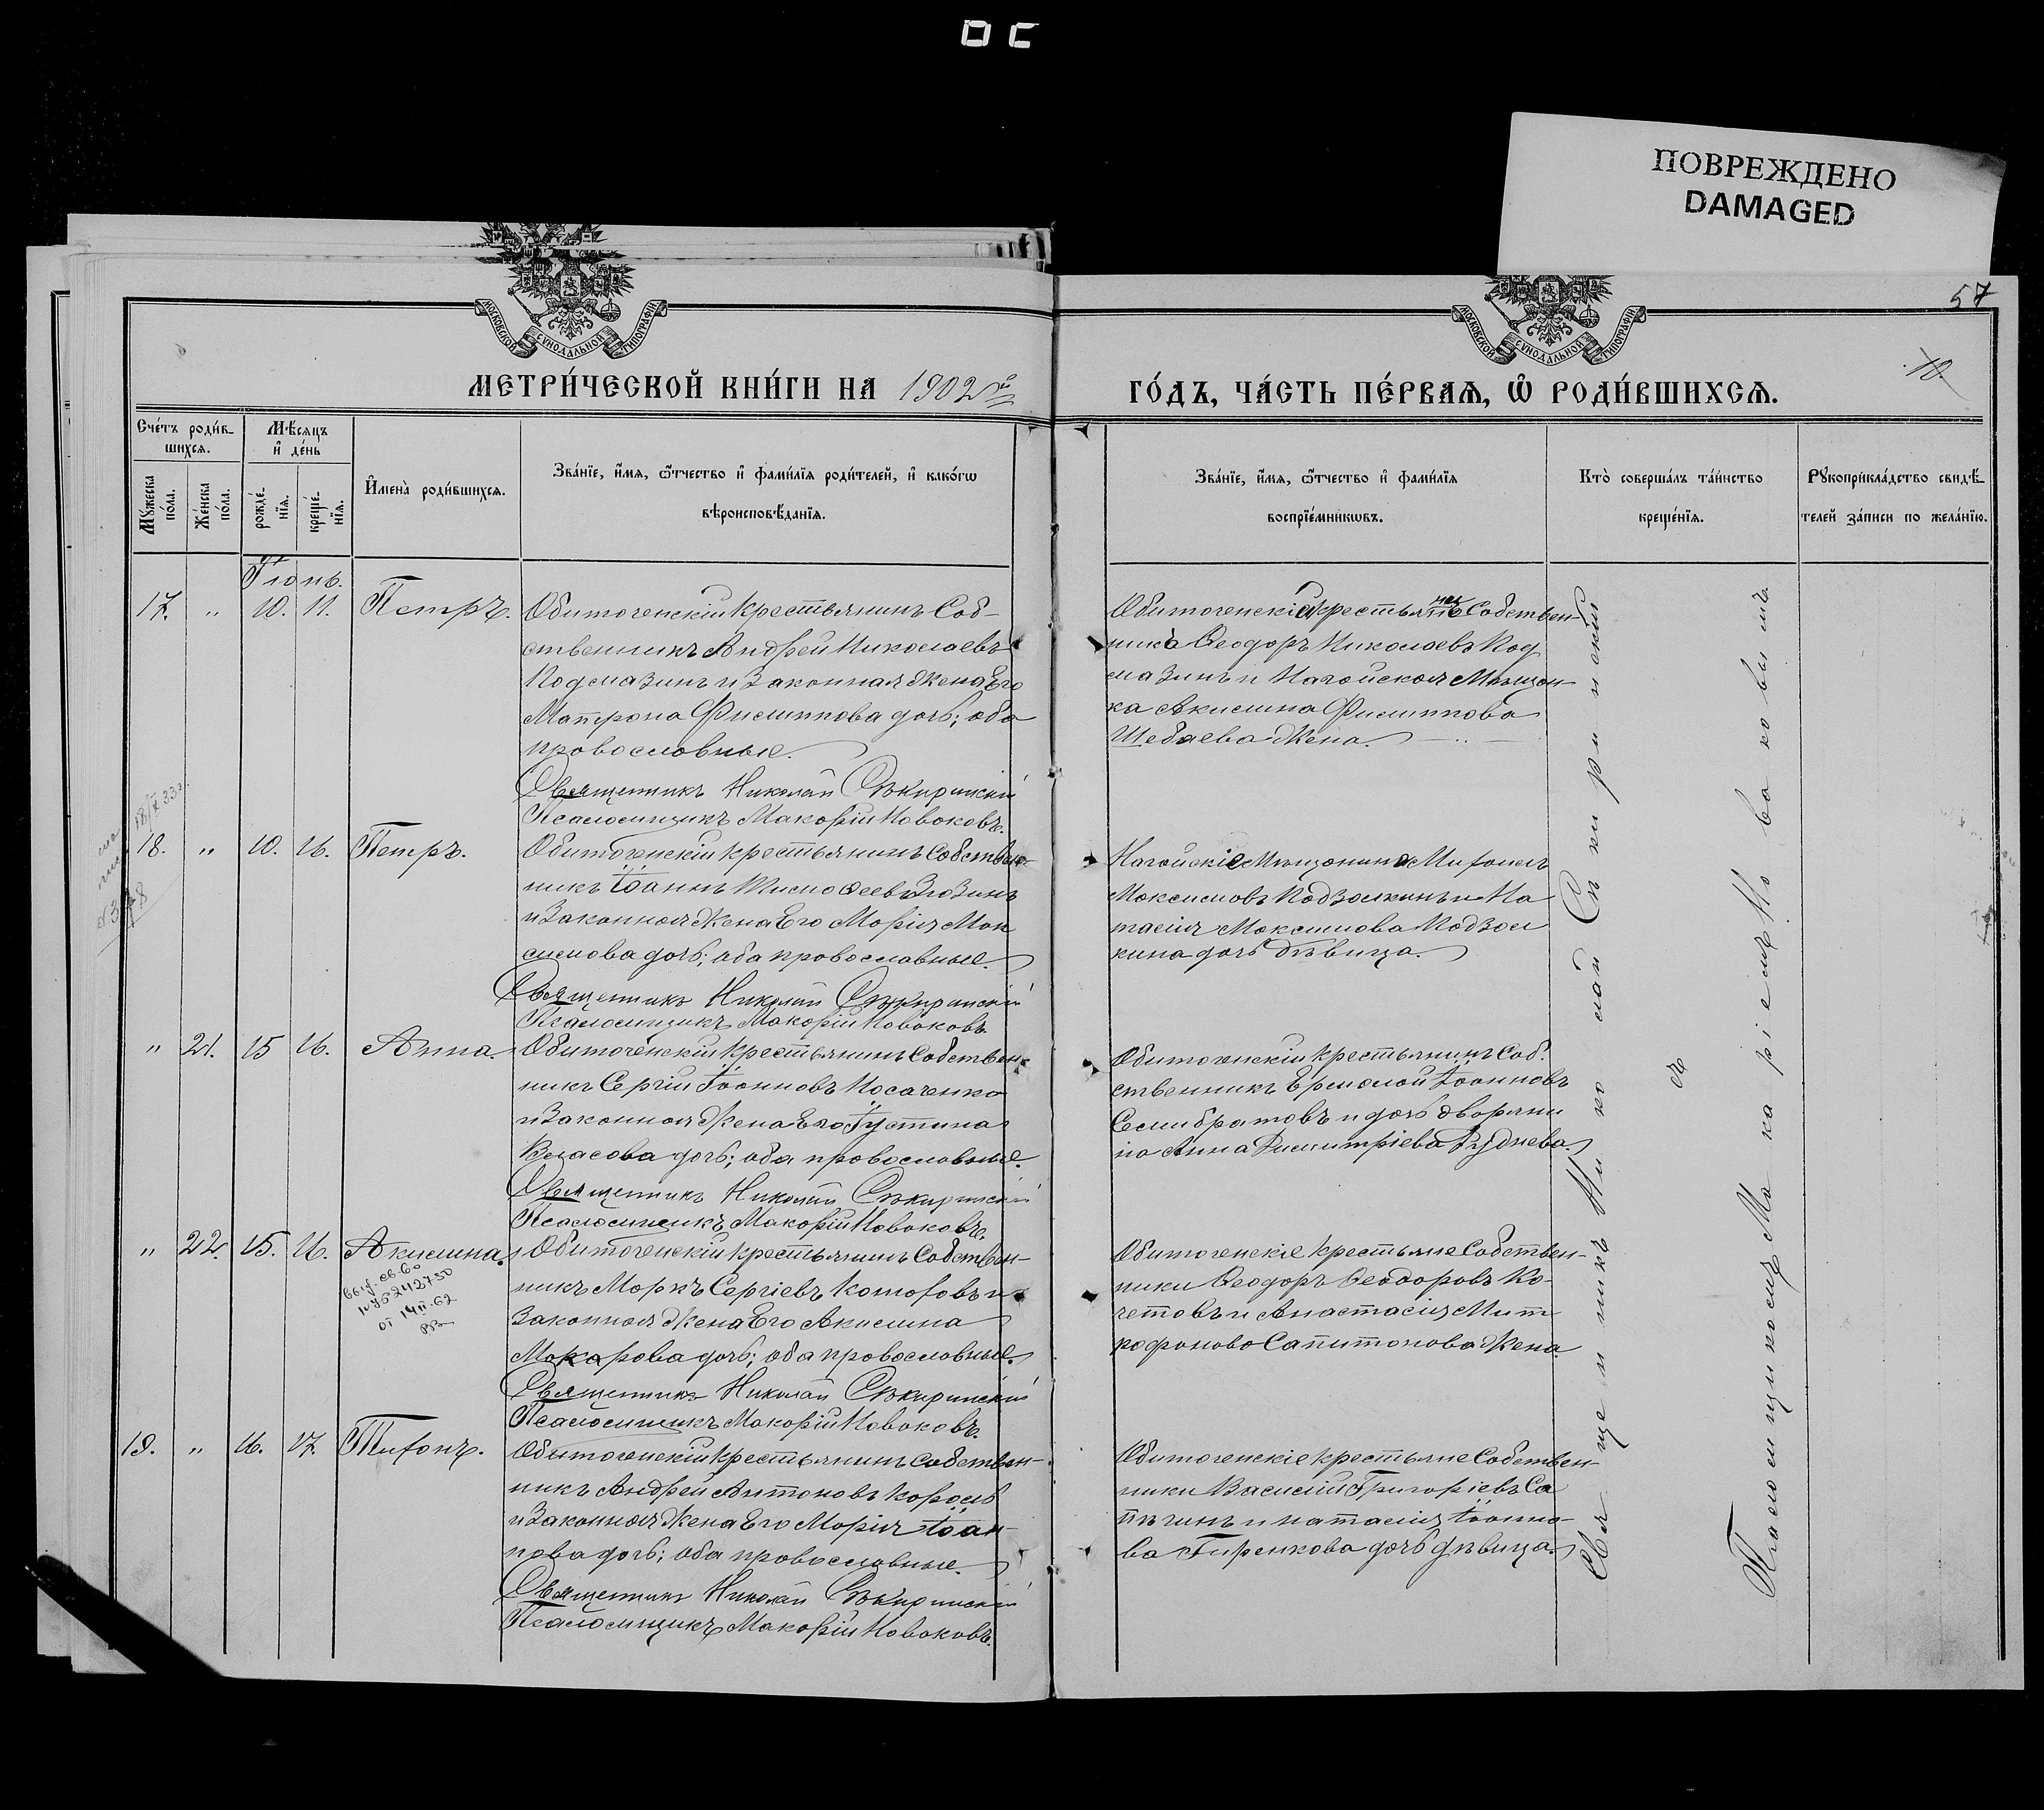 ПОВРЕЖДЕНО
DAMAGED
57
10.
МОСКОВСКОЙ СѴНОДАЛЬНОЙ ТИПОГРАФІИ
МОСКОВСКОЙ СѴНОДАЛЬНОЙ ТИПОГРАФІИ
МЕТРИ́ЧЕСКОЙ КНИ́ГИ НА 1902 го
ГО́ДЪ, ЧА́СТЬ ПЕ́РВАѦ, Ѽ РОДИ́ВШИХСѦ.
Сче́тъ роди́в-
шихсѧ.
Мꙋ́жеска по́ла.
Же́нска по́ла.
Мѣ́сѧцъ
и҆ де́нь
рожде́-
нїѧ.
креще́-
нїѧ.
И҆мена̀ роди́вшихсѧ.
Зва́нїе, и҆́мѧ, ѻ҆́тчество и҆ фами́лїѧ роди́телей, и҆ како́гѡ
вѣроисповѣ́данїѧ.
Зва́нїе, и҆́мѧ, ѻ҆́тчество и҆ фами́лїѧ
воспрїе́мникѡвъ.
Кто̀ соверша́лъ та́инство
креще́нїѧ.
Рꙋкоприкла́дство свидѣ́-
телей за́писи по жела́нїю.
Іюнь.
17. " 10. 11. Петръ.
Обиточенскій крестьянинъ Соб-
ственникъ Андрей Николаевъ
Кодмазинъ и Законная Жена Его
Матрона Филиппова дочь; оба
православные.
Священникъ Николай Сѣкиринскій
Псаломщикъ Макарій Новаковъ.
Собствен-
ника Ѳеодоръ Николаевъ Код
мазинъ и Нагайская Мѣщан-
ка Акилина Филиппова
Шебаева Жена.
18. " 10. 16. Петръ.
Обиточенскій крестьянинъ Собствен-
никъ Іоаннъ Тимоѳеевъ
и Законная Жена Его Марія Мак
симова дочь; оба православные.
Священникъ Николай Сѣкиринскій
Псаломщикъ Макарій Новаковъ.
Михаилъ
Максимовъ Подзолкинъ и На
талія Максимова Подзол
кина дочь дѣвица.
" 21. 15 16. Анна.
Обиточенскій крестьянинъ Собствен-
никъ Сергій Іоанновъ Косаченко
и Законная Жена Его Іустина
Власова дочь; оба православные.
Священникъ Николай Сѣкиринскій
Псаломщикъ Макарій Новаковъ.
Обиточенскій крестьянинъ Соб.
ственникъ Ермолай Іоанновъ
Семибратовъ и дочь дворяни
на Анна Димитріева Руднева.
" 22. 15. 16. Акилина.
Обиточенскій крестьянинъ Собствен-
никъ Маркъ Сергіевъ и
Законная Жена Его Акилина
Макарова дочь; оба православные.
Священникъ Николай Сѣкиринскій
Псаломщикъ Макарій Новаковъ.
Обиточенскіе крестьяне Собствен-
ники Ѳеодоръ Ѳеодоровъ Ко-
четовъ и Анастасія Мит
рофанова Капитонова Жена.
19. " 16. 17. Тихонъ.
Обиточенскій крестьянинъ Собствен-
никъ Андрей Антоновъ Король
и Законная Жена Его Марія Іоан-
нова дочь; оба православные.
Священникъ Николай Сѣкиринскій
Псаломщикъ Макарій Новаковъ.
Обиточенскіе крестьяне Собствен-
ники Василій Григоріевъ Са
пѣчинъ и Наталія Іоанно-
ва Гиренкова дочь дѣвица.
Священникъ Николай Сѣкиринскій
съ
Псаломщикомъ Макаріемъ Новаковымъ